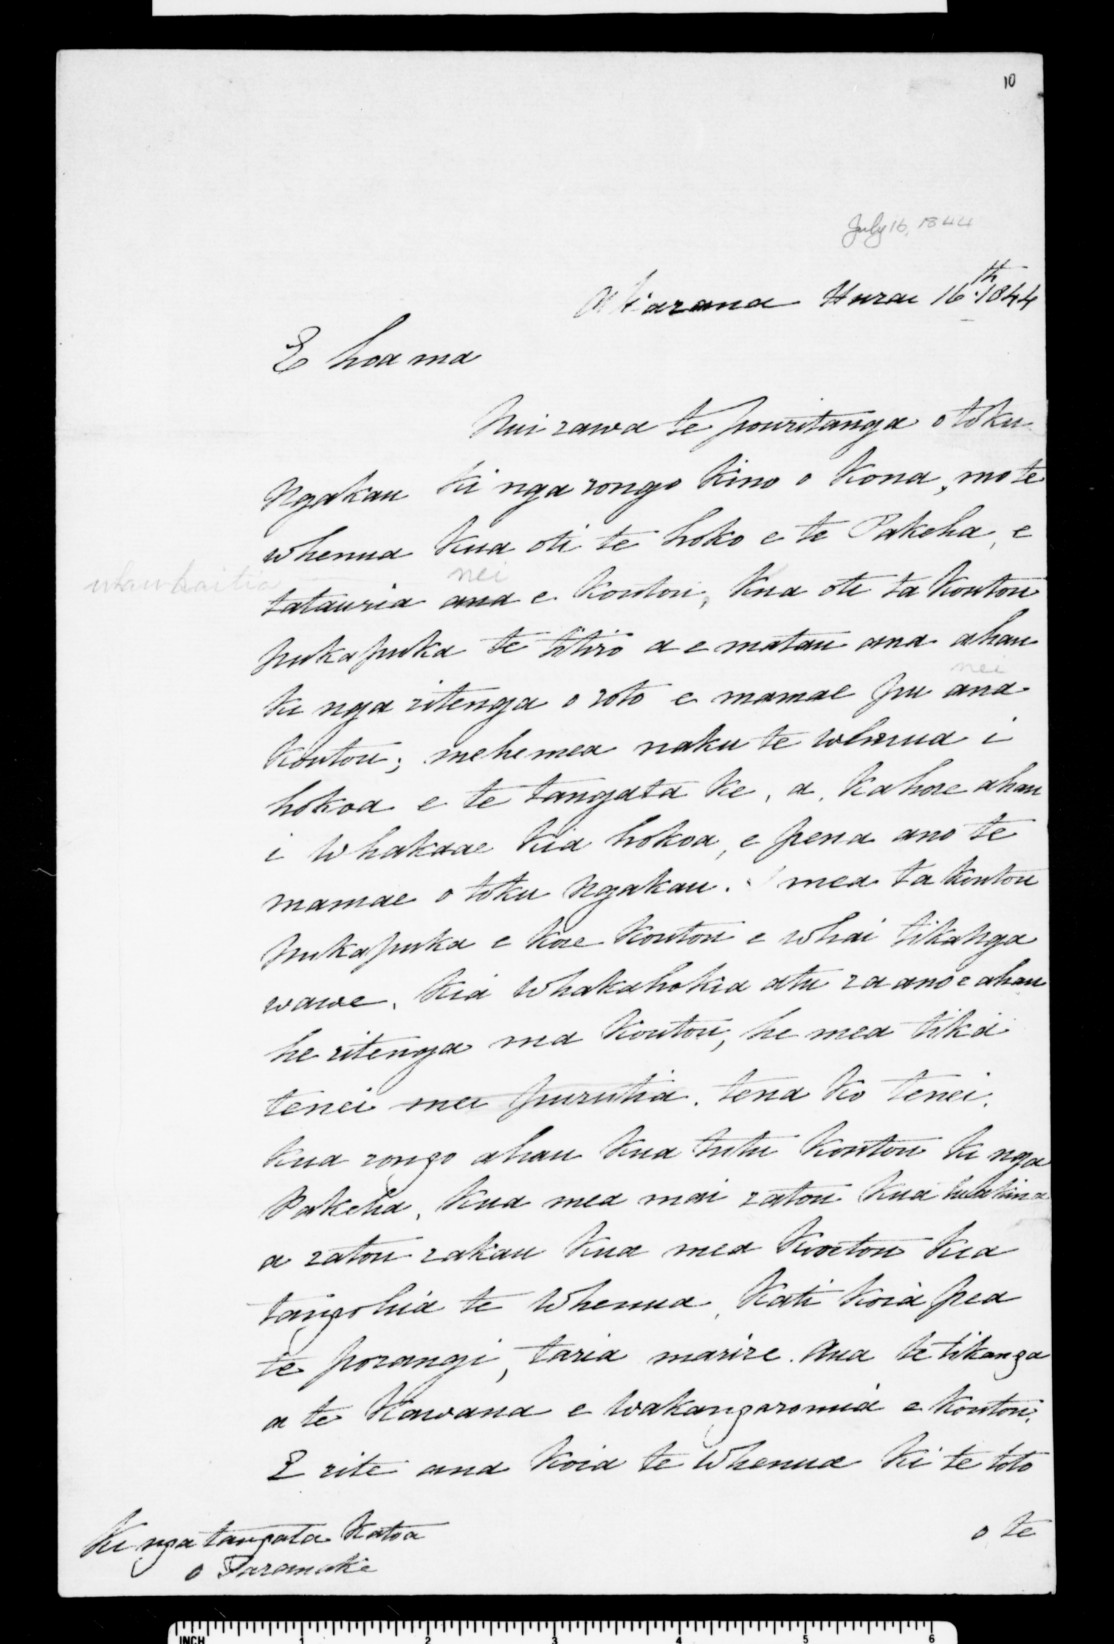 10
July 16, 1844
Akarana Hurae 16th. 1844
E hoa ma
Nui rawa te pouritanga o toku
Ngakau ki nga rongo kino o kona, mo te
whenua kua oti te hoko e te Pakeha, e
whawhaitia
nei
tatauria ana e koutou, kua oti ta koutou
pukapuka te titiro a e matau ana ahau
nei
ki nga ritenga o roto e mamae pu ana
koutou; mehemea naku te wenua i
hokoa e te tangata ke, a, kahore ahau
i whakaae kia hokoa, e pena ano te
mamae o toku Ngakau. I mea ta koutou
pukapuka e kore koutou e whai tikanga
wawe, kia whakahokia atu ra ano e ahau
he ritenga ma koutou, he mea tika
tenei me purutia. tena ko tenei.
kua rongo ahau kua tutu koutou ki nga
Pakeha, kua mea mai ratou kua tuakina
a ratou rakau kua mea koutou kia
tangohia te whenua, Kati koia pea
te porangi, taria marire. Aua te tikanga
a te Kawana e wakangaromia e koutou.
E rite ana koia te Whenua ki te toto
o te
Ki nga tangata katoa
o Taranaki